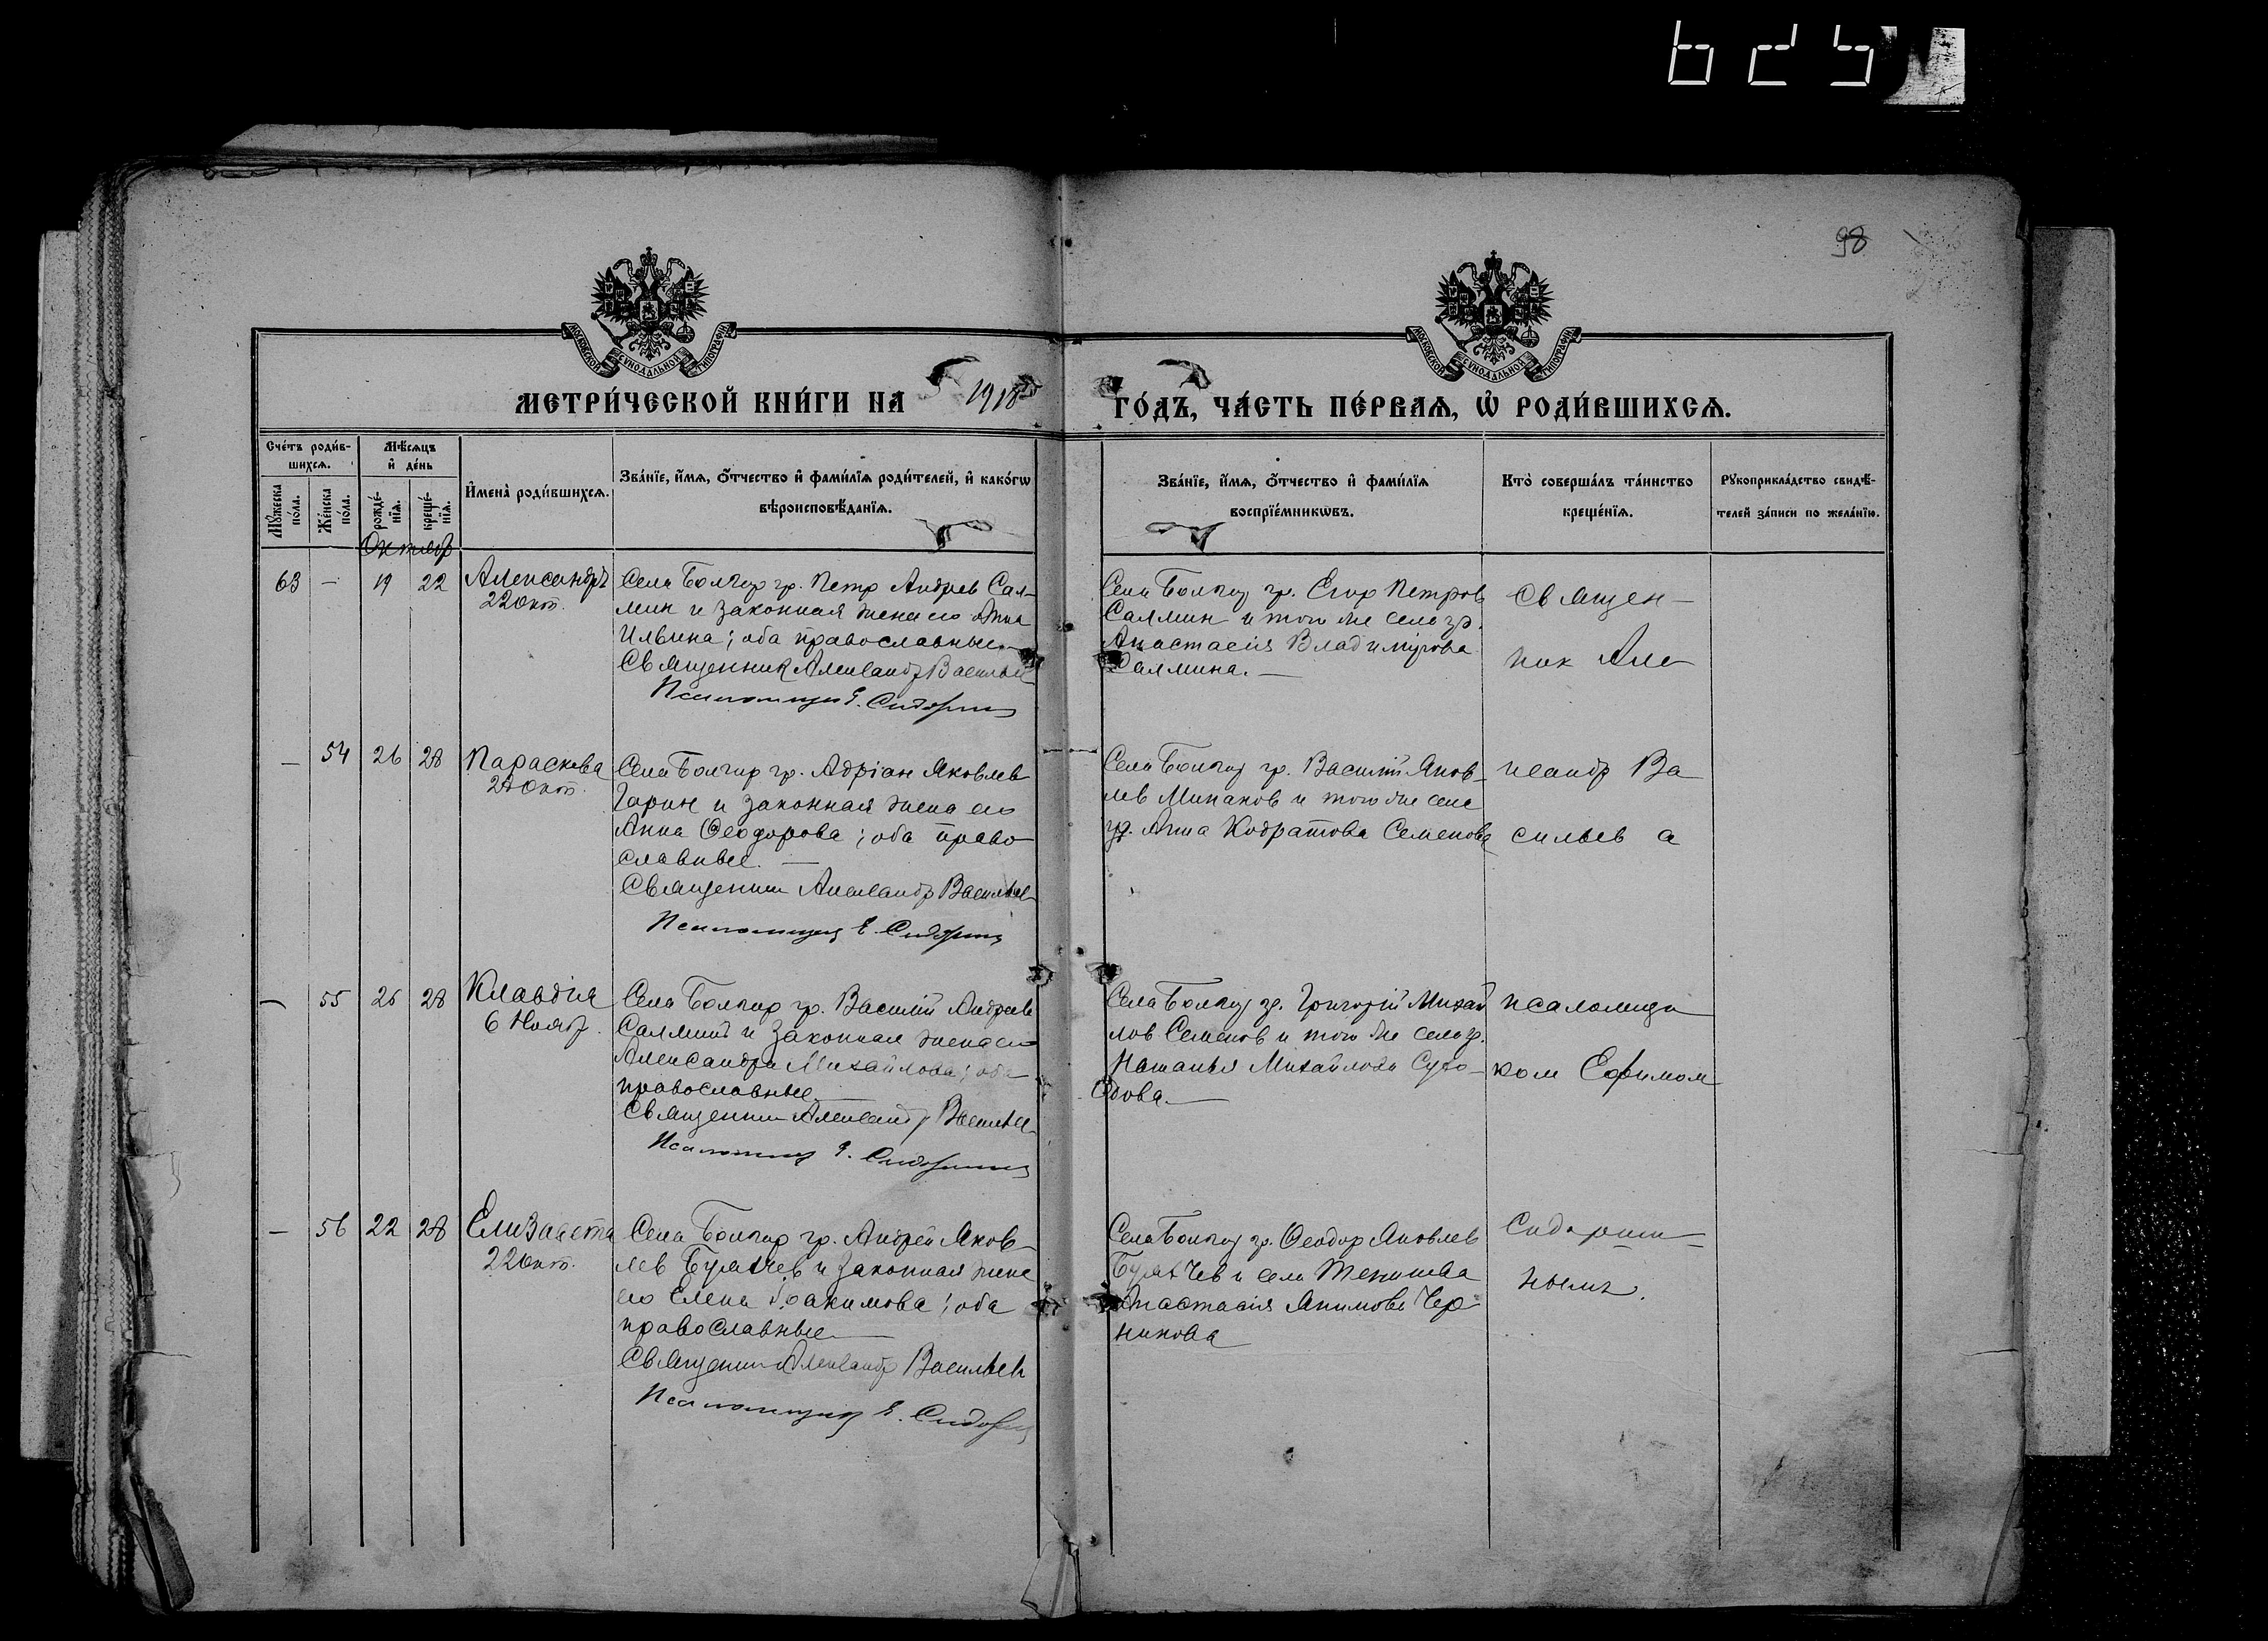 625
98
МОСКОВСКОЙ СѴНОДАЛЬНОЙ ТИПОГРАФІИ
МОСКОВСКОЙ СѴНОДАЛЬНОЙ ТИПОГРАФІИ
МЕТРИ́ЧЕСКОЙ КНИ́ГИ НА 1918 ГО́ДЪ, ЧА́СТЬ ПЕ́РВАѦ, Ѡ҆ РОДИ́ВШИХСѦ.
Сче́тъ роди́в-
шихсѧ.
Мꙋ́жеска по́ла.
Же́нска по́ла.
Мѣ́сѧцъ
и҆ де́нь
рожде́-
нїѧ.
креще́-
нїѧ.
И҆мена̀ роди́вшихсѧ.
Зва́нїе, и҆́мѧ, ѻ҆́тчество и҆ фами́лїѧ роди́телей, и҆ како́гѡ
вѣроисповѣ́данїѧ.
Зва́нїе, и҆́мѧ, ѻ҆́тчество и҆ фами́лїѧ
воспрїе́мникѡвъ.
Кто̀ соверша́лъ та́инство
креще́нїѧ.
Рꙋкоприкла́дство свидѣ́-
телей за́писи по жела́нїю.
Октябр
63 — 19 22 Александръ
22 окт.
Села Болгар гр. Петр Андреев Сал-
мин и законная жена его Анна
Ильина; оба православные
Священник Александр Васильев
Псаломщик Е. Сидорин
Села Болгар гр. Егор Петров
Салмин и того же села гр.
Анастасія Владимірова
Салмина. —
Священ-
ник Але
— 54 26 28 Параскева
28 Окт.
Села Болгар гр. Адріан Яковлев
Гарин и законная жена его
Анна Ѳеодорова; оба право
славные. —
Священник Александр Васильев
Псаломщик Е. Сидорин
Села Болгар гр. Василій Яков-
лев Минаков и того же села
гр. Анна Кодратова Семенова
ксандр Ва
сильев а
— 55 25 28 Клавдія
6 Ноябр.
Села Болгар гр. Василій Андреев
Салмин и законная жена его
Александра Михайлова; оба
православные
Священник Александр Васильев
Псаломщик Е. Сидорин
Села Болгар гр. Григорій Михай
лов Семенов и того же села гр.
Наталья Михайлова Сухо-
дова. —
псаломщи
ком Ефимом
— 56 22 28 Елизавета
22 окт.
Села Болгар гр. Андрей Яков-
лев и законная жена
его Елена Іоакимова; оба
православные
Священник Александр Васильев
Псаломщик Е. Сидорин
Села Болгар гр. Ѳеодор Яковлев
и села
Анастасія Якимова Чер
никова
Сидори-
нымъ.